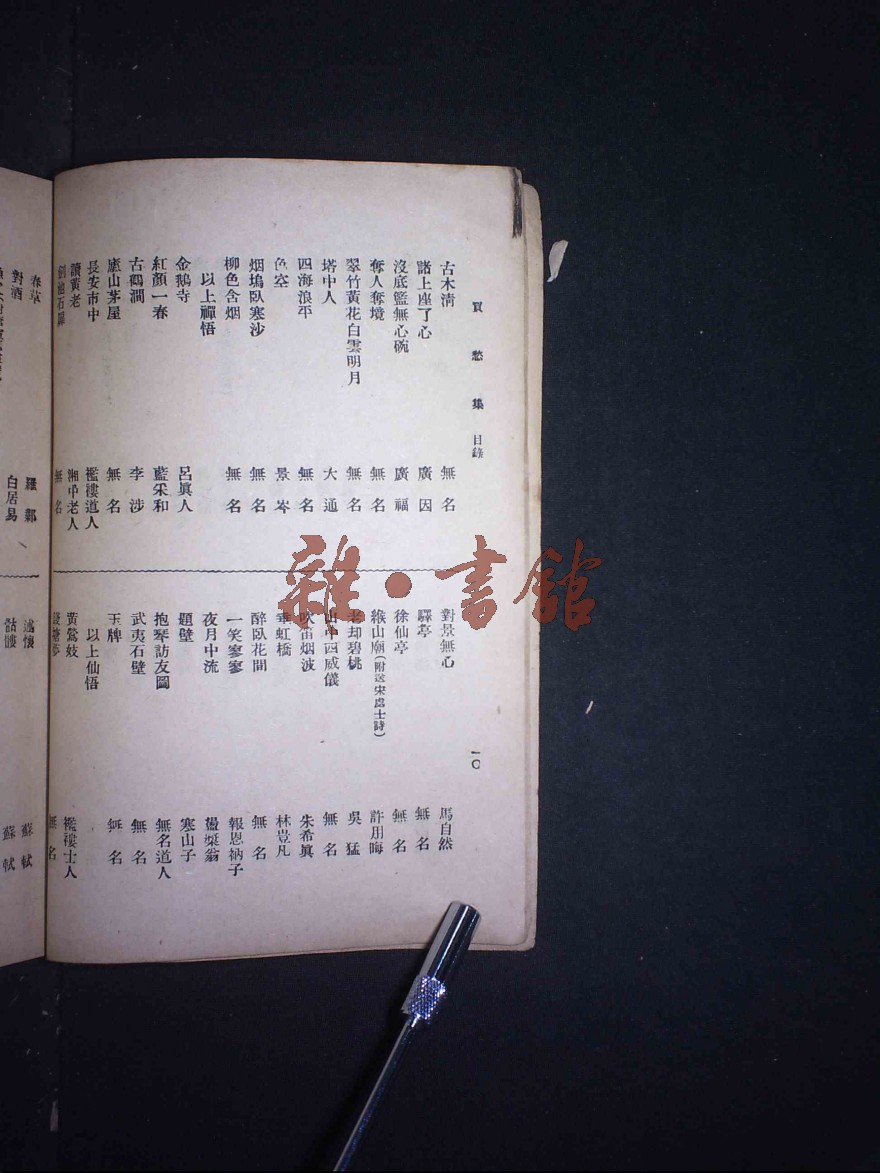 買愁集 目錄
一〇
古木清 無名
諸上座了心 廣因
沒底籃無心碗 廣福
奪人奪境 無名
翠竹黃花白雲明月 無名
塔中人 大通
四海浪平 無名
色空 景岑
烟塢臥寒沙 無名
柳色含烟 無名
以上禪悟
金鵝寺 呂眞人
紅顏一春 藍采和
古鶴澗 李涉
廬山茅屋 無名
長安市中 襤褸道人
讀黃老 湘中老人
劍池石 無名
對景無心 馬自然
驛亭 無名
徐仙亭 無名
緱山廟(附送宋處士詩) 許用晦
却碧桃 吳猛
山中四威儀 無名
吹笛烟波 朱希眞
垂虹橋 林豈凡
醉臥花間 無名
一笑寥寥 報恩衲子
夜月中流 盪槳翁
題壁 寒山子
抱琴訪友圖 無名道人
武夷石壁 無名
玉牌 無名
以上仙悟
黃鶯妓 襤褸士人
夢 無名
春草 羅鄴
對酒 白居易
述懷 蘇軾
骷髏 蘇軾
雜·書館